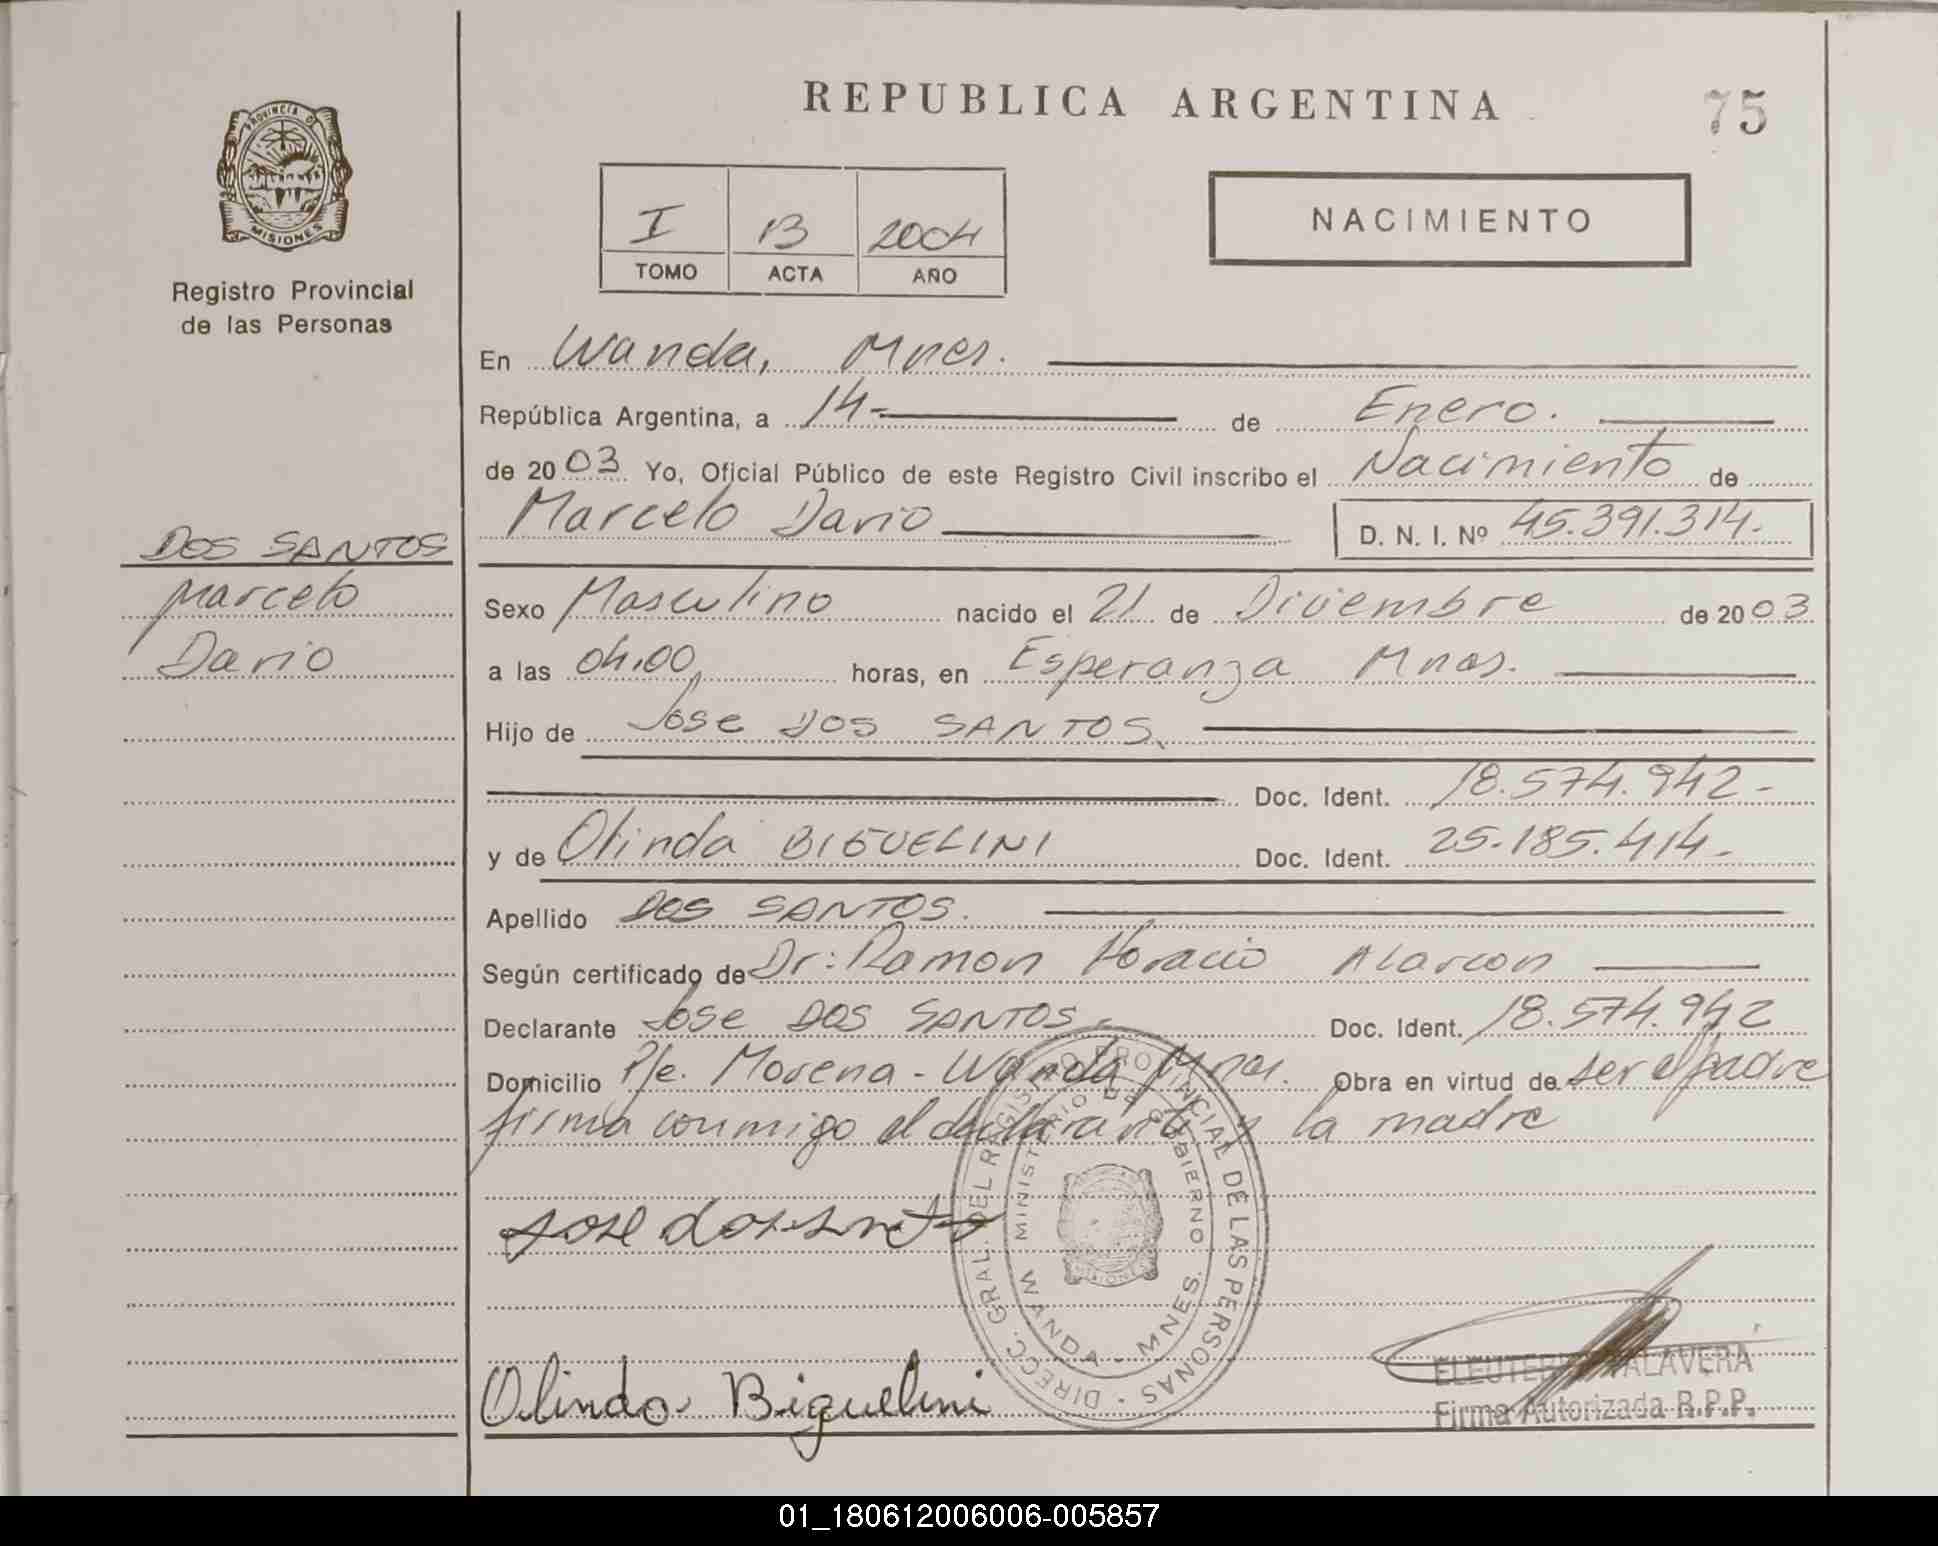 REPUBLICA ARGENTINA
75
PROVINCIA DE MISIONES
Registro Provincial
de las Personas
I 13 2004
TOMO ACTA AÑO
NACIMIENTO
En Wanda, Mnes.
República Argentina, a 14- de Enero.
de 2003 Yo, Oficial Público de este Registro Civil inscribo el Nacimiento de
Marcelo Dario D. N. I. Nº 45.391.314.-
DOS SANTOS
Marcelo
Dario
Sexo Masculino nacido el 21 de Diciembre de 2003
a las 04,00 horas, en Esperanza Mnes.
Hijo de Jose DOS SANTOS.
Doc. Ident. 18.574.942-
y de Olinda BIGUELINI Doc. Ident. 25.185.414-
Apellido DOS SANTOS.
Según certificado de Dr: Ramon Horacio Alarcon
Declarante Jose DOS SANTOS- Doc. Ident. 18.574.942
Domicilio Pje. Morena - Wanda Mnes. Obra en virtud de ser el padre
firma conmigo el declarante y la madre
DIRECC. GRAL. DEL REGISTRO PROVINCIAL DE LAS PERSONAS
MINISTERIO DE GOBIERNO
WANDA - MNES.
MISIONES
Jose dos santo
Olinda Biguelini
ELEUTERIO TALAVERA
Firma Autorizada R.P.P.
01_180612006006-005857